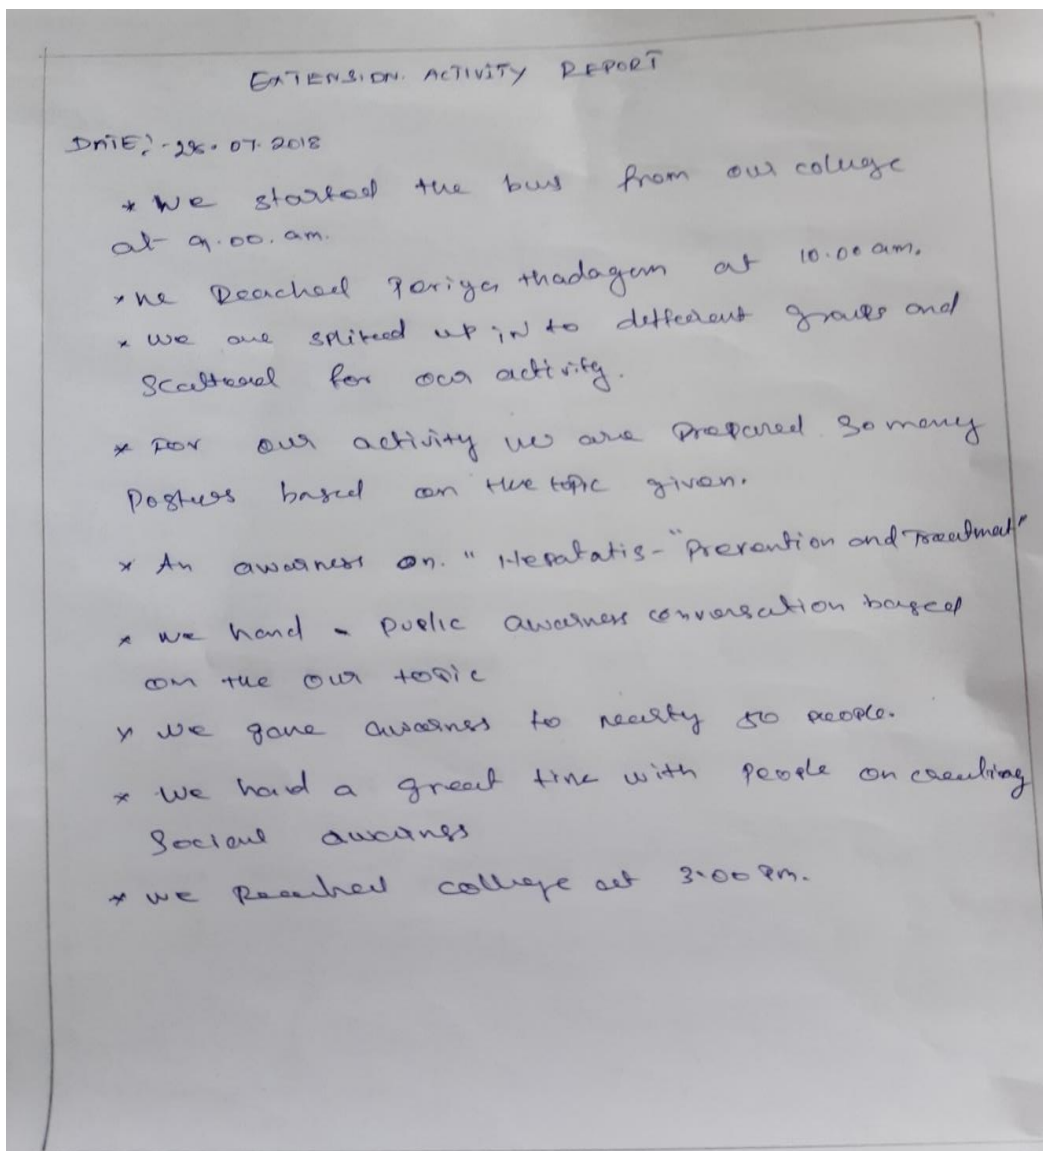 EXTENSION ACTIVITY REPORT
DATE:- 28.07.2018
* We started the bus from our college
at 9.00.am.
* We Reached Periya thadagam at 10.00 am.
* We are splited up in to different groups and
Scattered for our activity.
* For our activity we are prepared so many
Posters based on the topic given.
* An awarness on. "Hepatatis - "Prevention and Treatment"
* We hand - Public awarness conversation based
on the our topic
* We gave awarness to nearly 50 people.
* We had a great time with people on creating
Social awarness
* We Reached college at 3.00 pm.